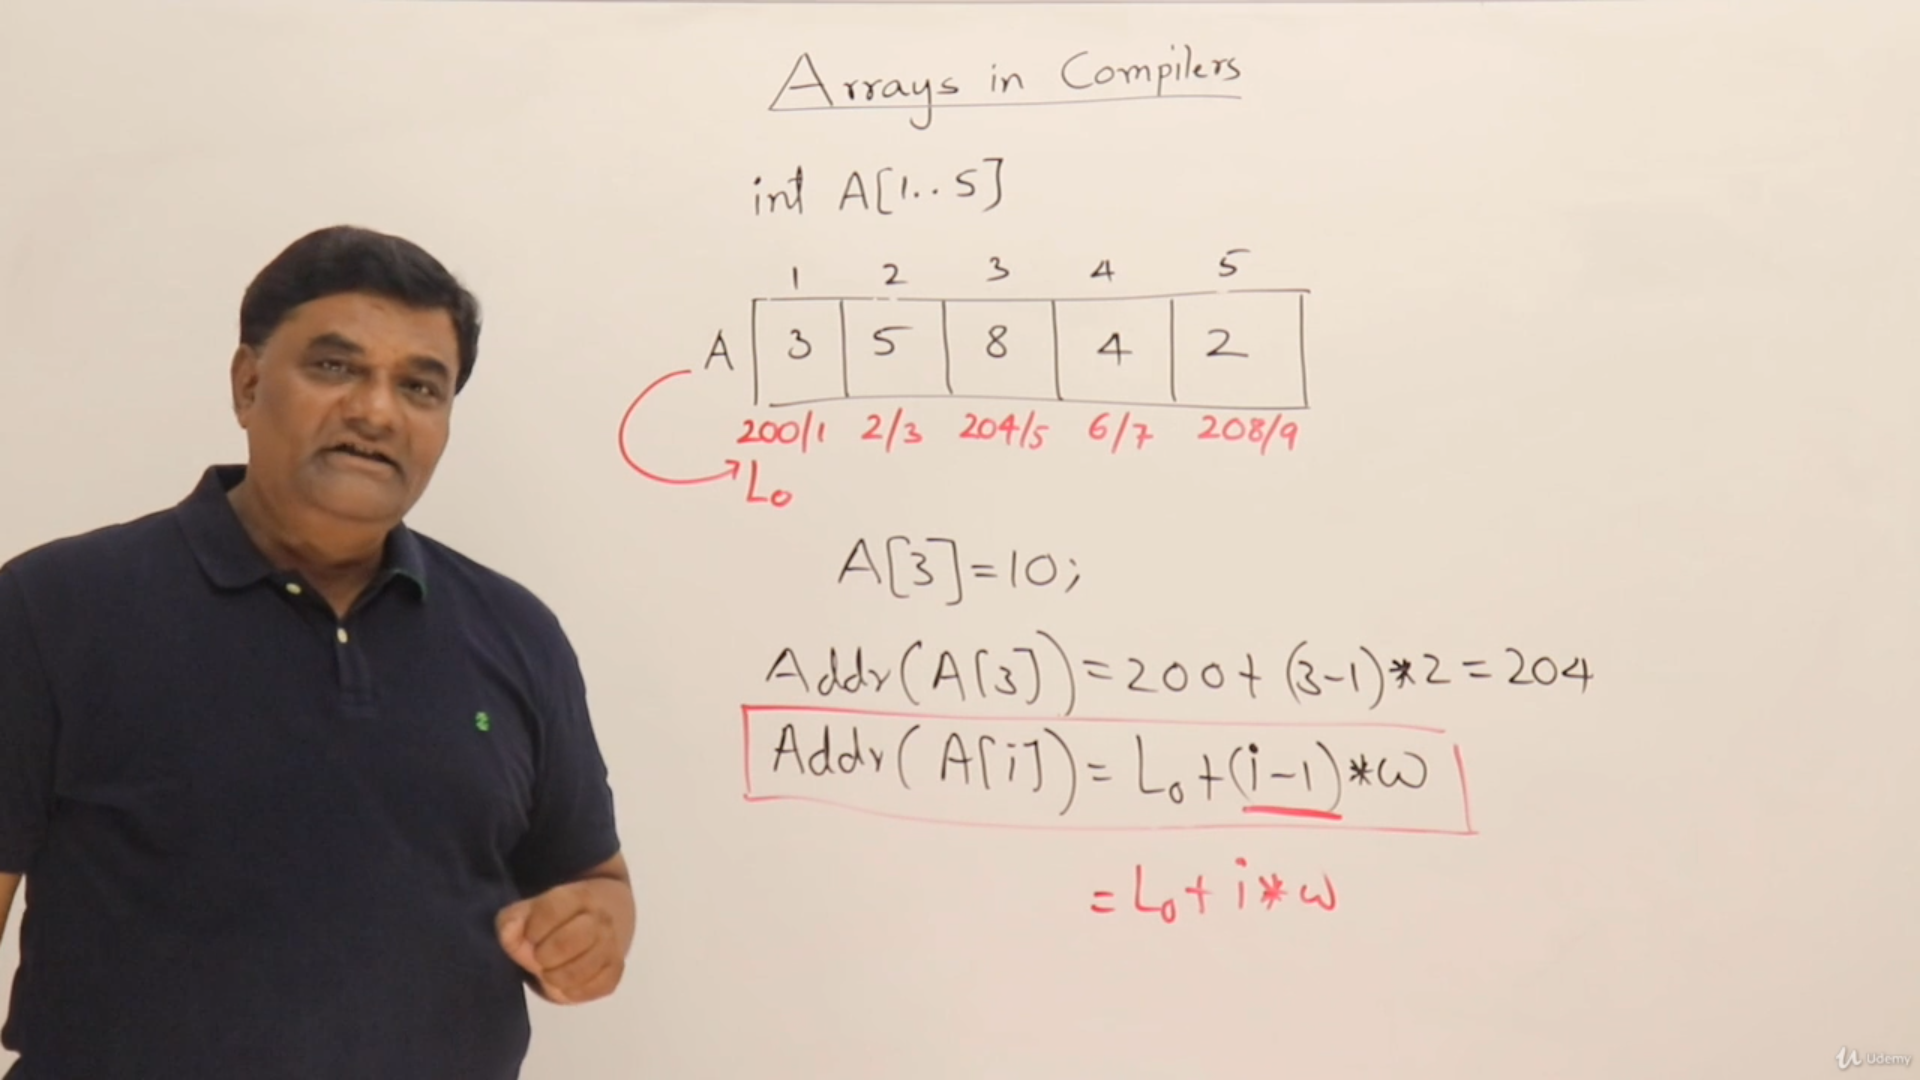 Arrays in Compilers
int A[1..5]
1 2 3 4 5
A 3 5 8 4 2
200/1 2/3 204/5 6/7 208/9
L₀
A[3]=10;
Addr(A[3])=200+(3-1)*2=204
Addr(A[i])=L₀+(i-1)*ω
=L₀+i*ω
Udemy